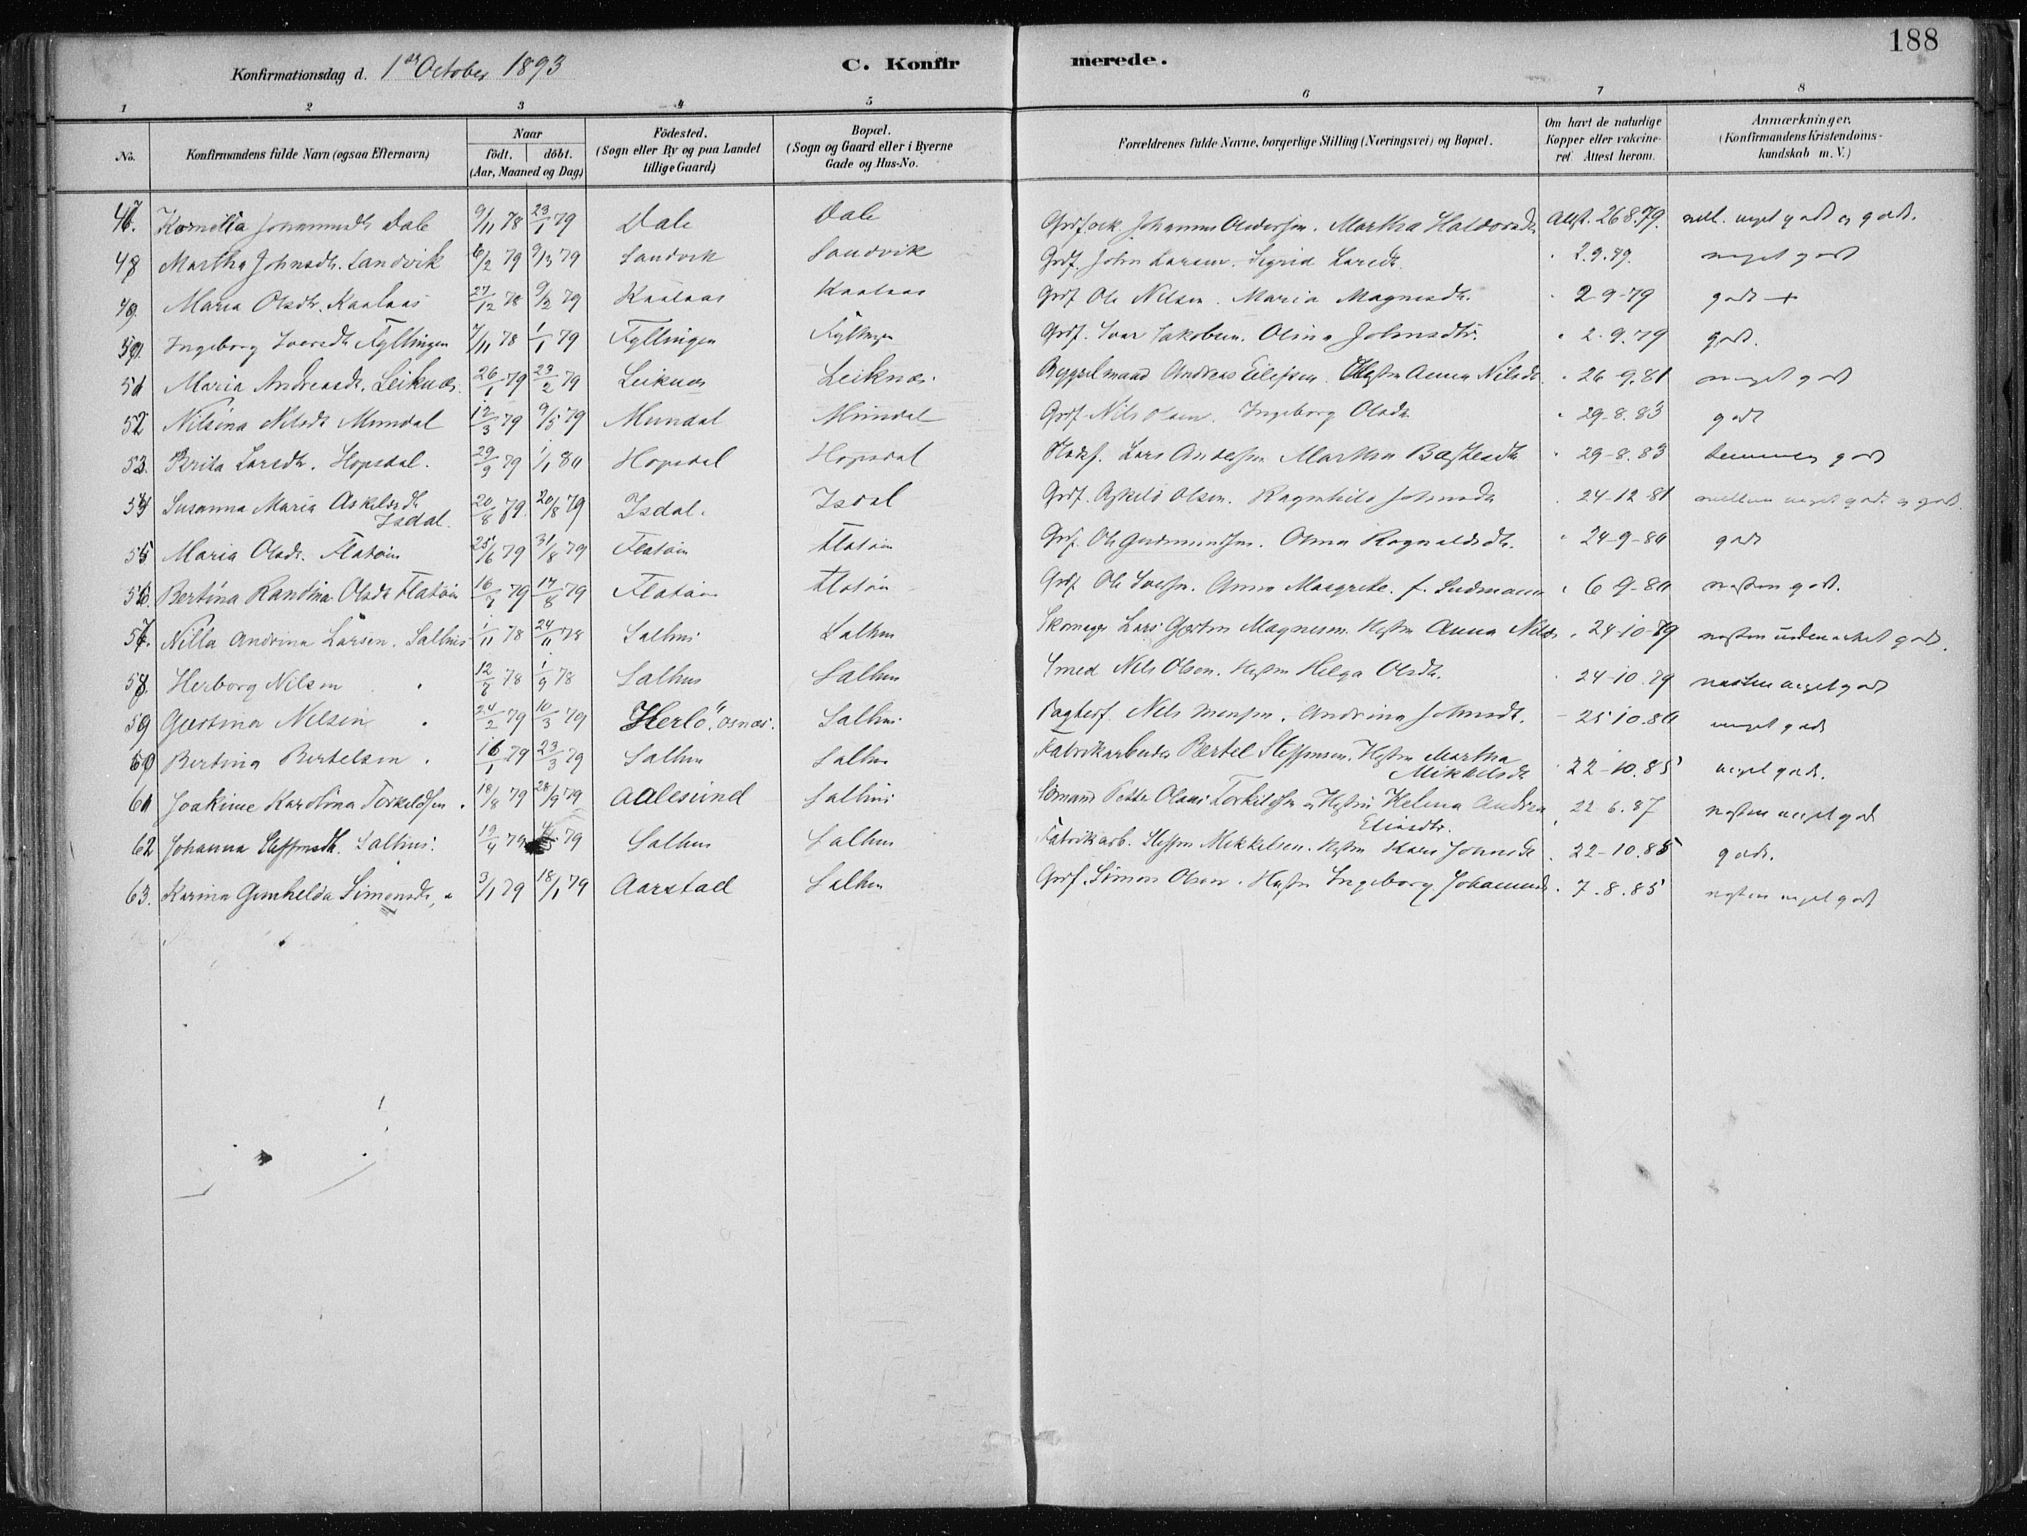 188
Konfirmationsdag d. 1ste October 1893
C. Konfir
merede.
1 2 3 4 5 6 7 8
No.
Konfirmandens fulde Navn (ogsaa Efternavn)
Naar
födt. döbt.
(Aar, Maaned og Dag)
Födested.
(Sogn eller By og paa Landet
tillige Gaard)
Bopæl.
(Sogn og Gaard eller i Byerne
Gade og Hus-No.
Forældrenes fulde Navne, borgerlige Stilling (Næringsvei) og Bopæl.
Om havt de naturlige
Kopper eller vakcine-
ret Attest herom.
Anmærkninger.
(Konfirmandens Kristendoms-
kundskab m. V.)
47. Kornelia Johannesdtr Dale 9/11 78 23/1 79 Dale Dale Johannes Andersen. Martha Haldorsdtr Attst. 26.8.79. mell. meget godt og godt.
48 Martha Johnsdtr. Sandvik 6/2 79 9/3 79 Sandvik Sandvik Grdf. John Larsen. Sigrid Larsdtr. " 2.9.79. meget godt
49 Maria Olsdtr. Kaalaas 27/12 78 9/2 79 Kaalaas Kaalaas Grdf Ole Nilsen. Maria Magnesdtr. " 2-9-79 godt +
50 Ingeborg Iversdtr Fyllingen 7/11 78 1/1 79 Fyllingen Fyllingen Grdf. Ivar Jakobsen. Olina Johnsdtr. " 2.9.79 godt.
51 Maria Andreasdtr. Leiknæs. 26/1 79 23/2 79 Leiknæs Leiknæs. Andreas Eilefsen. Hustru Anna Nilsdtr. " 26-9.81 meget godt
52 Nilsina Nilsdtr Mundal 12/3 79 9/5 79 Mundal Mundal Grdf Nils Olsen. Ingeborg Olsdtr. " 29.8.83 godt
53. Brita Larsdtr. Hopsdal. 29/9 79 1/1 80 Hopsdal Hopsdal Lars Andersen Martha " 29-8.83 temmelig godt
54 Susanna Maria Askelsdtr 20/8 79 20/8 79 Isdal. Isdal Grdf. Askeld Olsen. Ragnhild Johnsdtr " 24-12 81 mellem meget godt og godt.
Isdal.
55 Maria Olsdtr. Flatøin 25/6 79 31/8 79 Flatøin Flatøin Grdf. Ole Gudmundsen. Olina Ragnaldsdtr. " 24-9-80 godt
56. Bertina Randina Olsdtr Flatøin 16/7 79 17/8 79 Flatøin Flatøin Grdf Ole Iversen. Anna Margrete. f. " 6-9-80 næsten godt.
57. Nilla Andrina Larsen. Salhus 1/11 78 24/11 78 Salhus Salhus Skomager Lars Magnesen. Hustru Anna Nilsdtr " 24-10-79 næsten udmerket godt.
58. Herborg Nilsen " 12/8 78 1/9 78 Salhus Salhus Smed Nils Olsen. Hustru Helga Olsdtr. " 24-10.79 næsten meget godt
59 Gurtina Nilsen " 24/2 79 10/3 79 Herlö, osnæs. Salhus. Nils Monsen. Andrina Johnsdtr. - 25 10.80 meget godt
60 Bertina Bertelsen " 16/1 79 23/3 79 Salhus Salhus Fabrikarbeider Bertel Steffensen. Hustru Martha
Mikkelsdtr " 22-10.85 meget godt.
61 Joakime Karolina Torkeldsen. " 18/8 79 28/9 79 Aalesund Salhus Sömand Petter Olaus Torkildsen og Hustru Helena Andrea
Eliasdtr. " 22 6.87 næsten meget godt
62 Johanna Steffensdtr. Salhus. 19/4 79 79 Salhus Salhus Fabrikarb. Steffen Mikkelsen. Hustru Kari Johnsdtr " 22-10.85 godt.
63. Karina Gunhelda Simonsdtr, " 3/1 79 18/1 79 Aarstad Salhus Grdf. Simon Olsen. Hustru Ingeborg Johannesdtr " 7.8.85 næsten meget godt